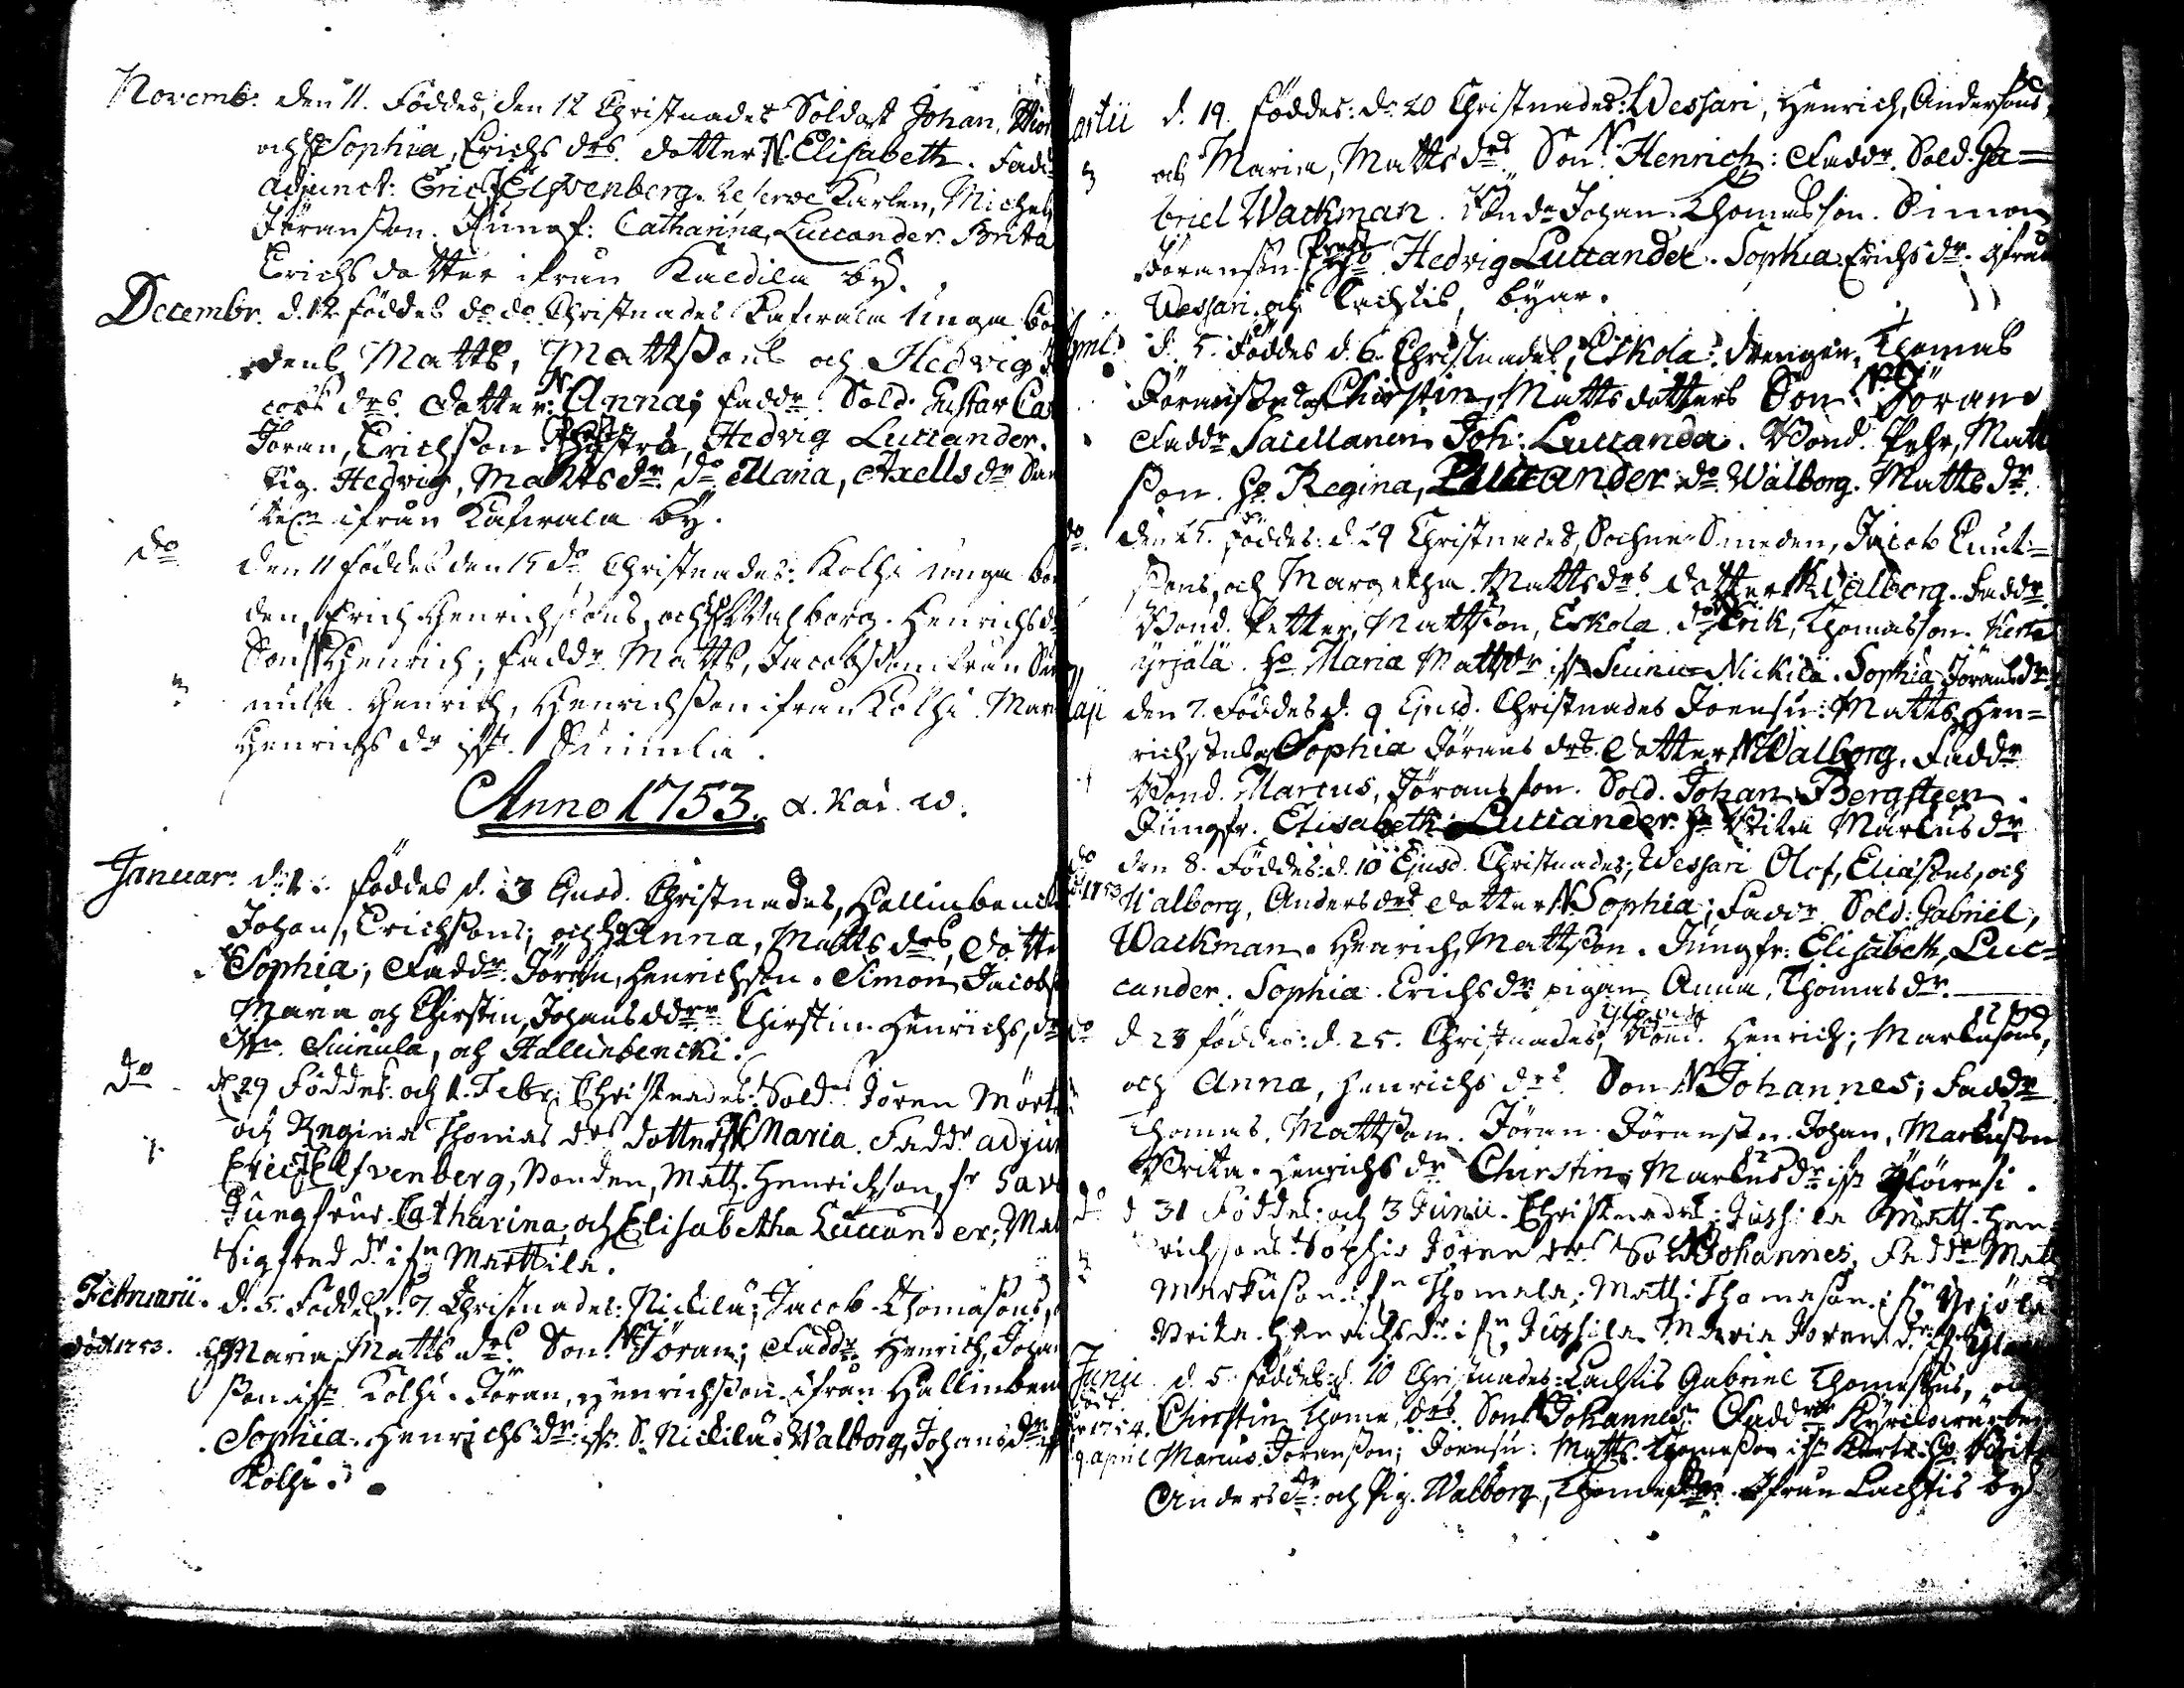 Novemb. den 11. Föddes, den 12 Christnades Soldat Johan,
och H. Sophia, Erichs drs. dotter N. Elisabeth. Fadd
Adjunct: Eric Elfvenberg. Karlen, Michel
Jöransson. Jungf: Catharina, Luccander. Brita
Erichs dotter ifrån Kaldila by.
Decembr. d. 12 föddes do. do. Christnades unga bon
dens, Matts, Mattssons och Hedvig
drs. dotter N. Anna; Faddr. Sold. Gustav
Jöran, Erichsson. Hedvig Luccander.
Pig. Hedvig, Matts dr. do Maria, Axells dr
ifrån by.
do den 11 föddes den 15 do. Christnades: Kolhi unga bon
den, Erich Henrichssons, och H. Walborg. Henrichs d
Son N Henrich; Faddr. Matts, Jacobsson ifrån
mula. Henrich, Henrichsson ifrån Kolhi. Mar
Henrichs dr ifr. Suinula.
Anno 1753.
Januar. d. 1. föddes d. 3 Ejusd. Christnades, Hallinbencki
Johan, Erichssons; och H Anna, Matts drs, dotte
N Sophia; Faddr. Jöran, Henrichson. Simon, Jacobs
Maria och Chirstin, Johans ddrr. Chirstin. Henrichs, dr
Ifrn. Suinula, och Hallinbencki.
do d. 29 Föddes: och 1. Febr: Christnades. Sold. Jören
och Regina Thomas drs dotter N Maria. Faddr adjun
Eric Elfvenberg, Bonden, Matz. Henrichson, fr
Jungfrur. Catharina, och Elisabetha Luccander; Ma
Sigfred dr. ifrn Marttila.
Februarii. d. 5. Föddes, d. 7. Christnades: Nickila; Jacob. Thomasons,
död 1753. H Maria, Matts drs. Son. N Jöran; Faddr. Henrich, Johan
sson ifr. Kolhi. Jöran, Henrichsson ifrån Hallinben
Sophia. Henrichs dr. ifr. S. Nickilä. Walborg, Johans dr. ifr
Kolhi.
artii d. 19. föddes: do. 20 Christnades: Wessari, Henrich, Anderssons,
och Maria, Matts drs. Son N. Henrich: Faddr. Sold. Ga=
briel Wackman. Bonde Johan. Thomasson. Simon
Jöransson. Hedvig Luccander. Sophia. Erichs dr. Ifrån
Wessari, och Lachtis, byar.
April d. 5. Föddes d. 6. Christnades; Eskola: drengen, Thomas
Jöranssons och Chirstin, Matts dotters Son. N. Jöran
Faddr Sacellanen Joh: Luccander. Bond. Pehr, Matt
sson. H. Regina, Luccander. do. Walborg. Matts dr.
do. den 25. föddes: d. 29 Christnades, Sochne Smeden, Jacob Knut=
ssons, och Margetha. Matts drs. dotter N. Walborg. Faddr.
Bond. Petter, Mattsson, Eskola. do. Erik, Thomasson. Kerte
yrjälä. H. Maria Matts dr ifr. Suinu Nickilä. Sophia Jörans dr.
aji den 7. Föddes d. 9 Ejusd. Christnades Joensu: Matts. Hen=
richssons och Sophia Jörans drs. dotter N Walborg. Faddr
Bond. Marcus, Jöransson. Sold. Johan Bergsteen
Jungfr. Elisabeth Luccander. H. Brita Markus dr
do den 8. Föddes: d. 10 Ejusd. Christnades; Wessari Olof, Eliassons, och
1753 Walborg, Anders drs. dotter N Sophia; Faddr. Sold: Gabriel,
Wackman. Henrich, Mattsson. Jungfr: Elisabeth, Luc=
cander. Sophia. Erichs dr. pigan Anna, Thomas dr.
do d. 23 föddes: d. 25. Christnades, Bond. Henrich; Markussons,
och Anna, Henrichs drs. Son N Johannes; Faddr
Thomas. Mattsson. Jöran. Jöransson. Johan, Markusson
Brita. Henrichs dr Chirstin, Markus dr ifr Ylöiresi.
do d 31 Föddes: och 3 Junii. Christnades: Jussila Matz. Hen
richsons. Sophia Jören drs Son N Johannes, Faddr Matz
Markuson. ifrn Thomala; Matz: Thomason. ifrn Yrjölä
Brita. Henrichs dr. ifrn Jussila. Maria Jören dr. ifrn
Junii d. 5. föddes: d. 10 Christnades: Lachtis Gabriel Thomassons, och
död 1754. Chirstin Thoma, drs. Son N Johannes. Faddr
9. april Marcus Jöransson; Joensu: Matts. Thomasson ifr Kerte. H. Brita
Anders dr: och Pig. Walborg, Thomas dr. Ifrån Lachtis by